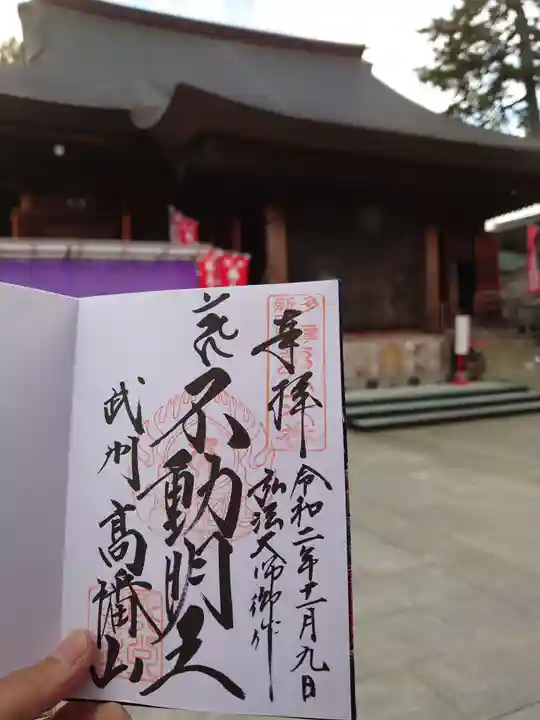 奉拝
令和二年十一月九日
弘法大师御作
不動明王
武州
髙幡山